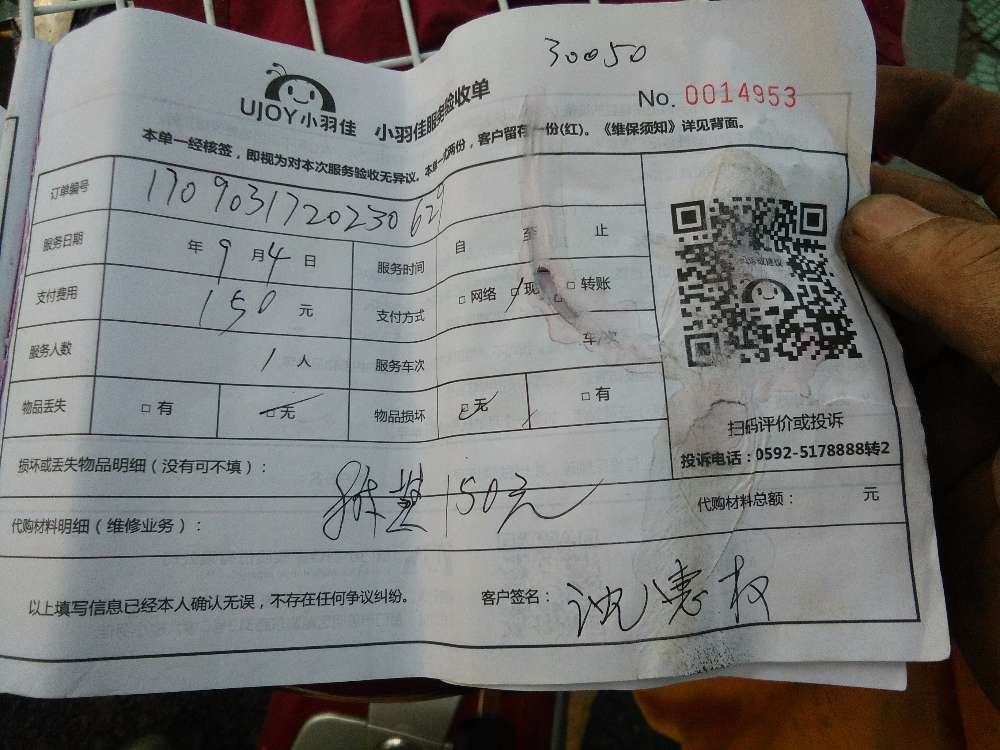 30050
UJOY小羽佳 小羽佳服务验收单
No. 0014953
本单一经核签，即视为对本次服务验收无异议。本单一式两份，客户留存一份(红)。《维保须知》详见背面。
订单编号 1709031720230629
服务日期 年 9 月 4 日 服务时间 自 至 止
支付费用 150 元 支付方式 □ 网络 □ 现 □ 转账
服务人数 1 人 服务车次 车/次
物品丢失 □ 有 □ 无 物品损坏 □ 无 □ 有
扫码评价或投诉
投诉电话：0592-5178888转2
损坏或丢失物品明细（没有可不填）：
150元
代购材料明细（维修业务）： 代购材料总额： 元
以上填写信息已经本人确认无误，不存在任何争议纠纷。 客户签名：